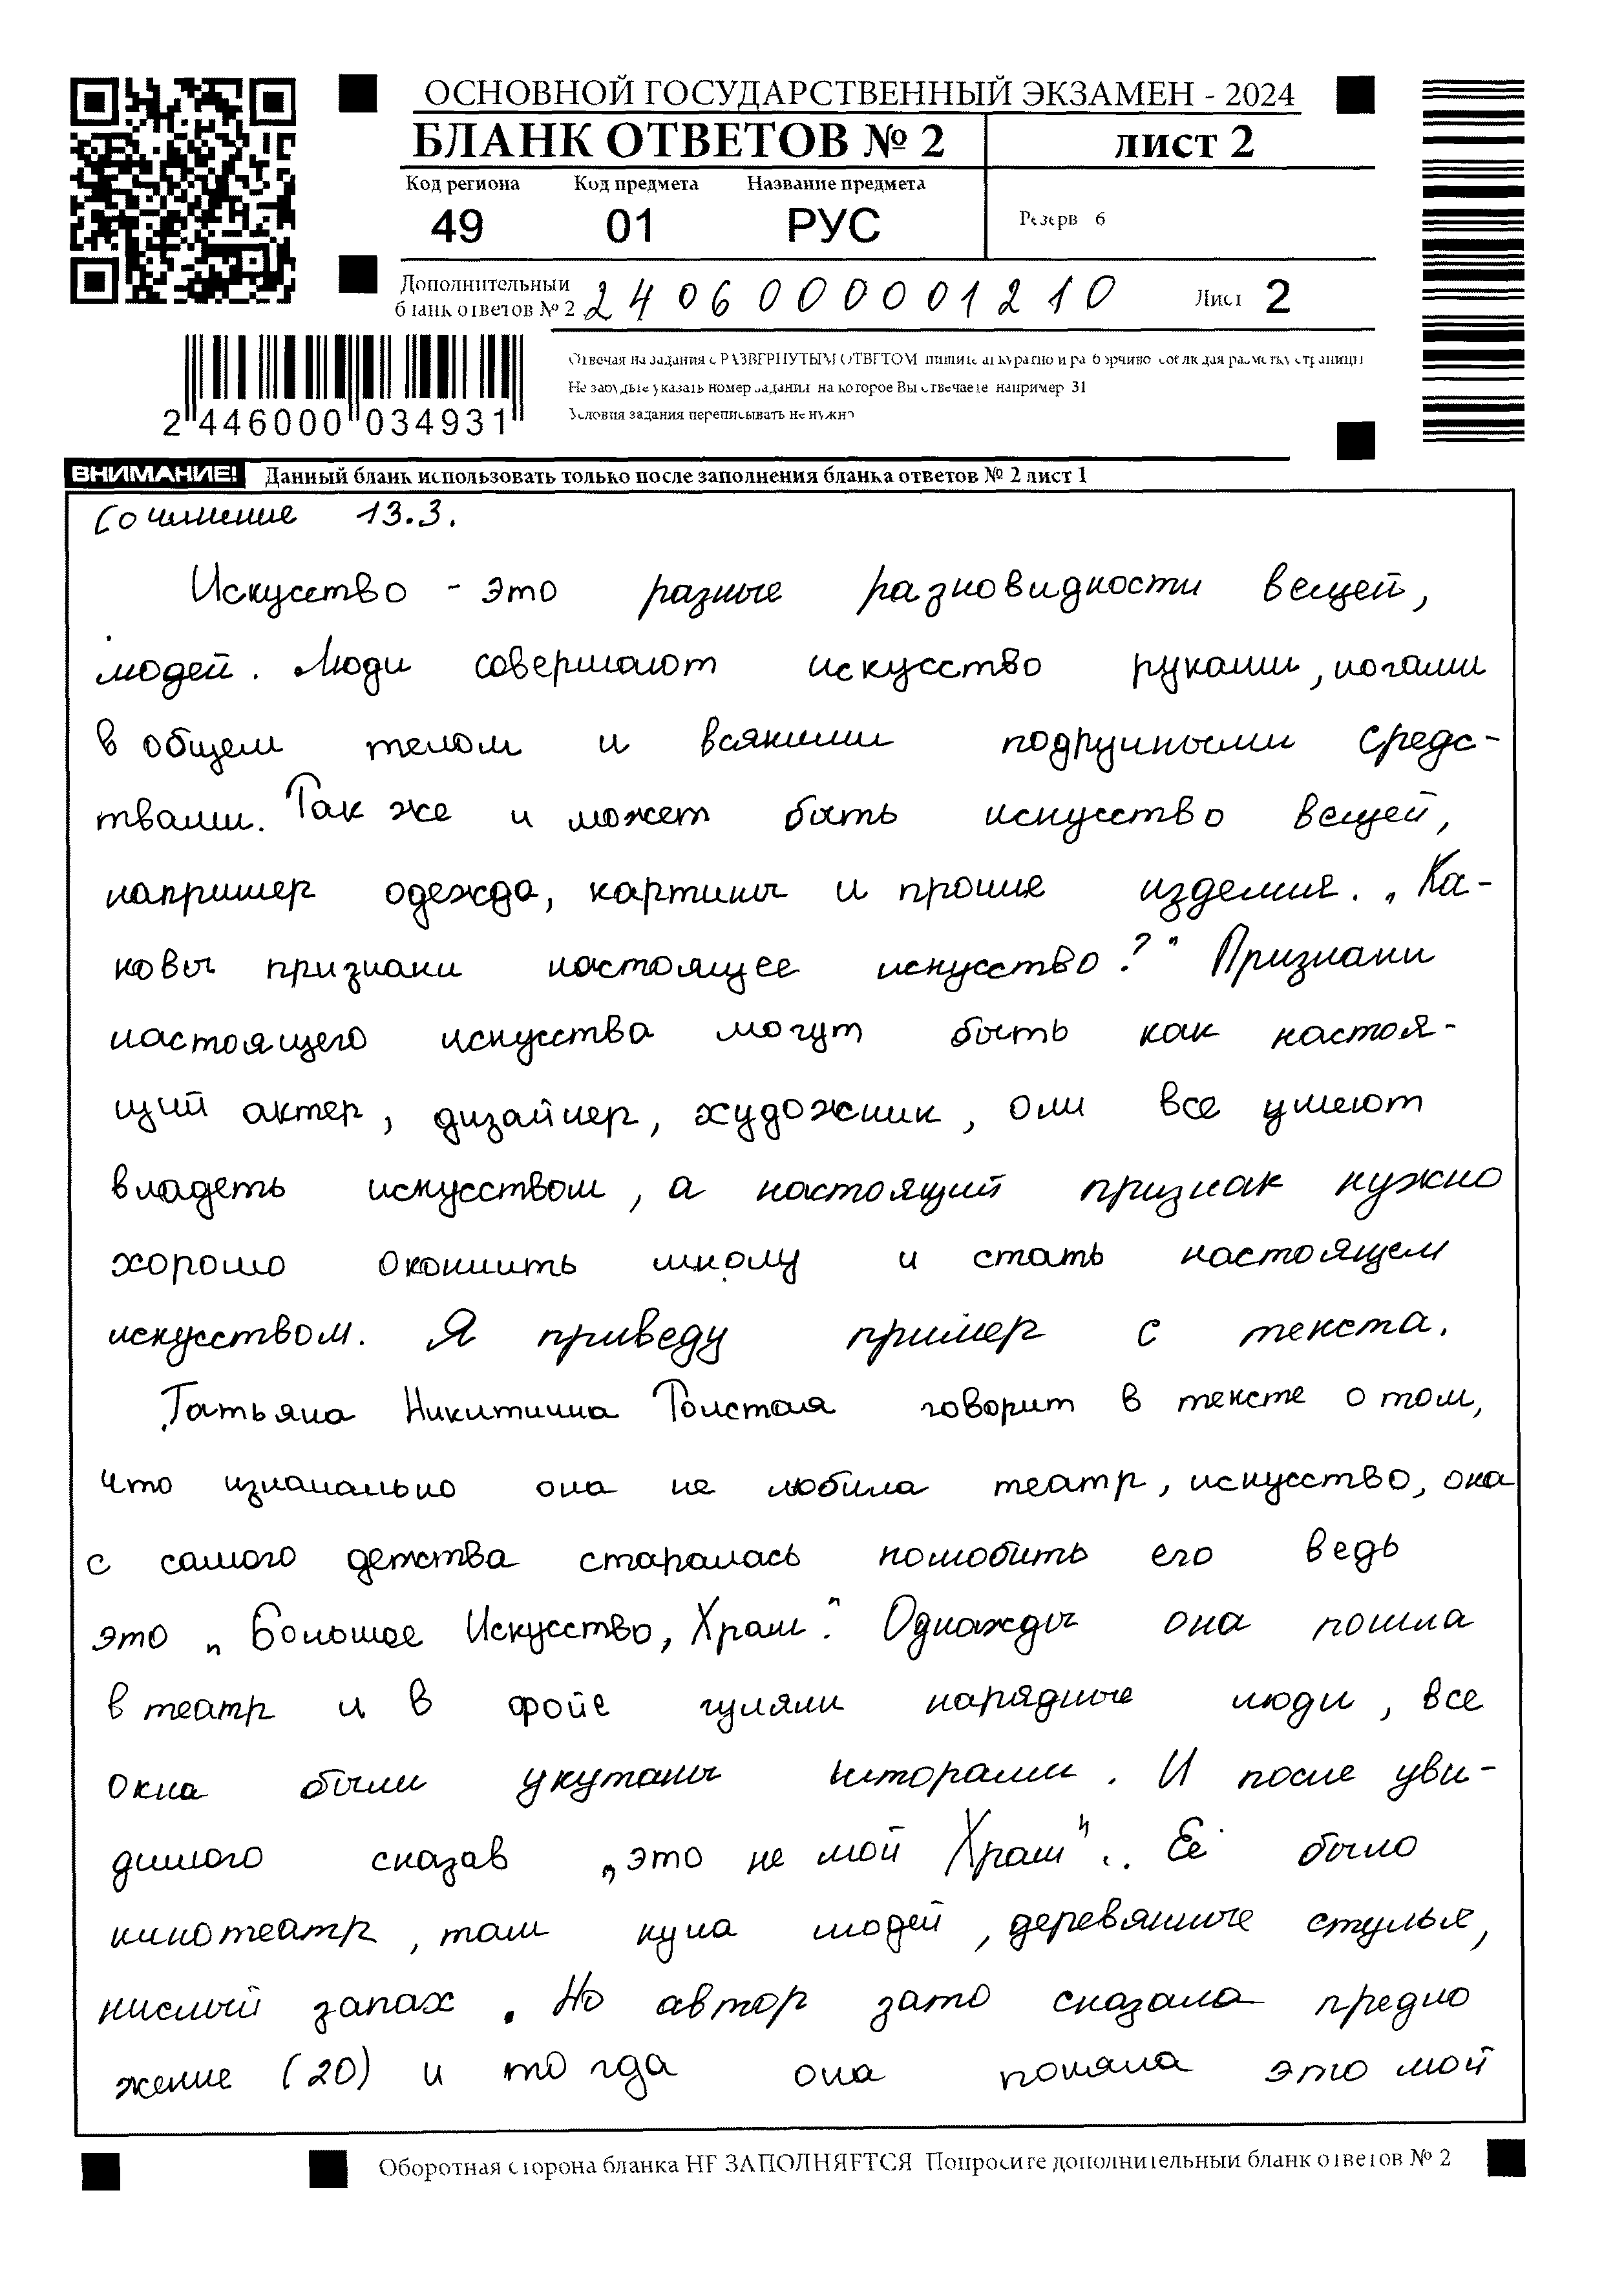 ОСНОВНОЙ ГОСУДАРСТВЕННЫЙ ЭКЗАМЕН - 2024
БЛАНК ОТВЕТОВ № 2 лист 2
Код региона Код предмета Название предмета
49 01 РУС
Резерв 6
Дополнительный
бланк ответов № 2 2406000001210 Лист 2
Отвечая на задания с РАЗВЕРНУТЫМ ОТВЕТОМ пишите аккуратно и разборчиво соблюдая разметку страницы
Не забудьте указать номер задания на которое Вы отвечаете например 31
Условия задания переписывать не нужно
2 446000 034931
ВНИМАНИЕ! Данный бланк использовать только после заполнения бланка ответов № 2 лист 1
Сочинение 13.3.
Искусство - это разные разновидности вещей,
людей. Люди совершают искусство руками, ногами
в общем телом и всякими подручными средс-
твами. Так же и может быть искусство вещей,
например одежда, картины и прочие изделия. „Ка-
ковы признаки настоящее искусство?" Признаки
настоящего искусства могут быть как настоя-
щий актер, дизайнер, художник, они все умеют
владеть искусством, а настоящий признак нужно
хорошо окончить школу и стать настоящем
искусством. Я приведу пример с текста.
Татьяна Никитична Толстая говорит в тексте о том,
что изначально она не любила театр, искусство, она
с самого детства старалась полюбить его ведь
это „Большое Искусство, Храм". Однажды она пошла
в театр и в фойе гуляли нарядные люди, все
окна были укутаны шторами. И после уви-
димого сказав „это не мой Храм". Её было
кинотеатр, там куча людей, деревянные стулья,
кислый запах. Но автор зато сказала предло
жение (20) и тогда она поняла это мой
Оборотная сторона бланка НЕ ЗАПОЛНЯЕТСЯ Попросите дополнительный бланк ответов № 2